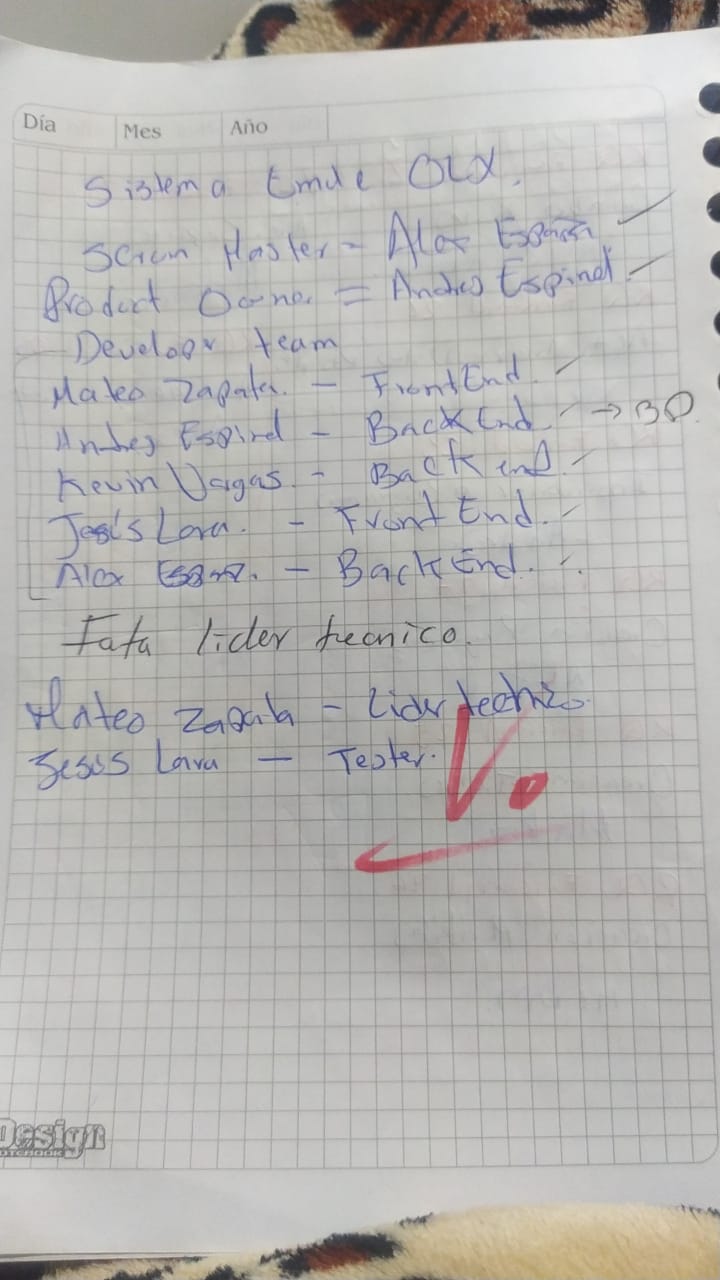 Día Mes Año
Sistema Emde OLX.
Scrum Master - Alex Esparza
Product Owner = Andres Espinel
Developr team
Mateo Zapata. - FrontEnd
Andres Espinel - BackEnd → BD
Kevin Vargas. - Back end.
Jesús Lara. - Front End.
Alex - BackEnd.
Fata lider tecnico.
Mateo Zapata - Lider technico.
Jesus Lara - Tester.
Design
NOTEBOOK